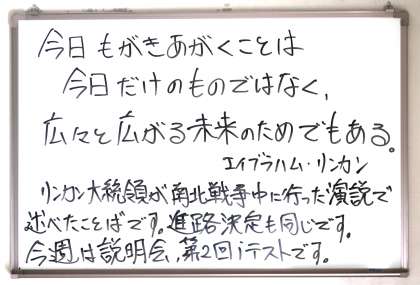 今日もがきあがくことは
今日だけのものではなく、
広々と広がる未来のためでもある。
エイブラハム・リンカン
リンカン大統領が南北戦争中に行った演説で
述べたことばです。進路決定も同じです。
今週は説明会、第2回iテストです。